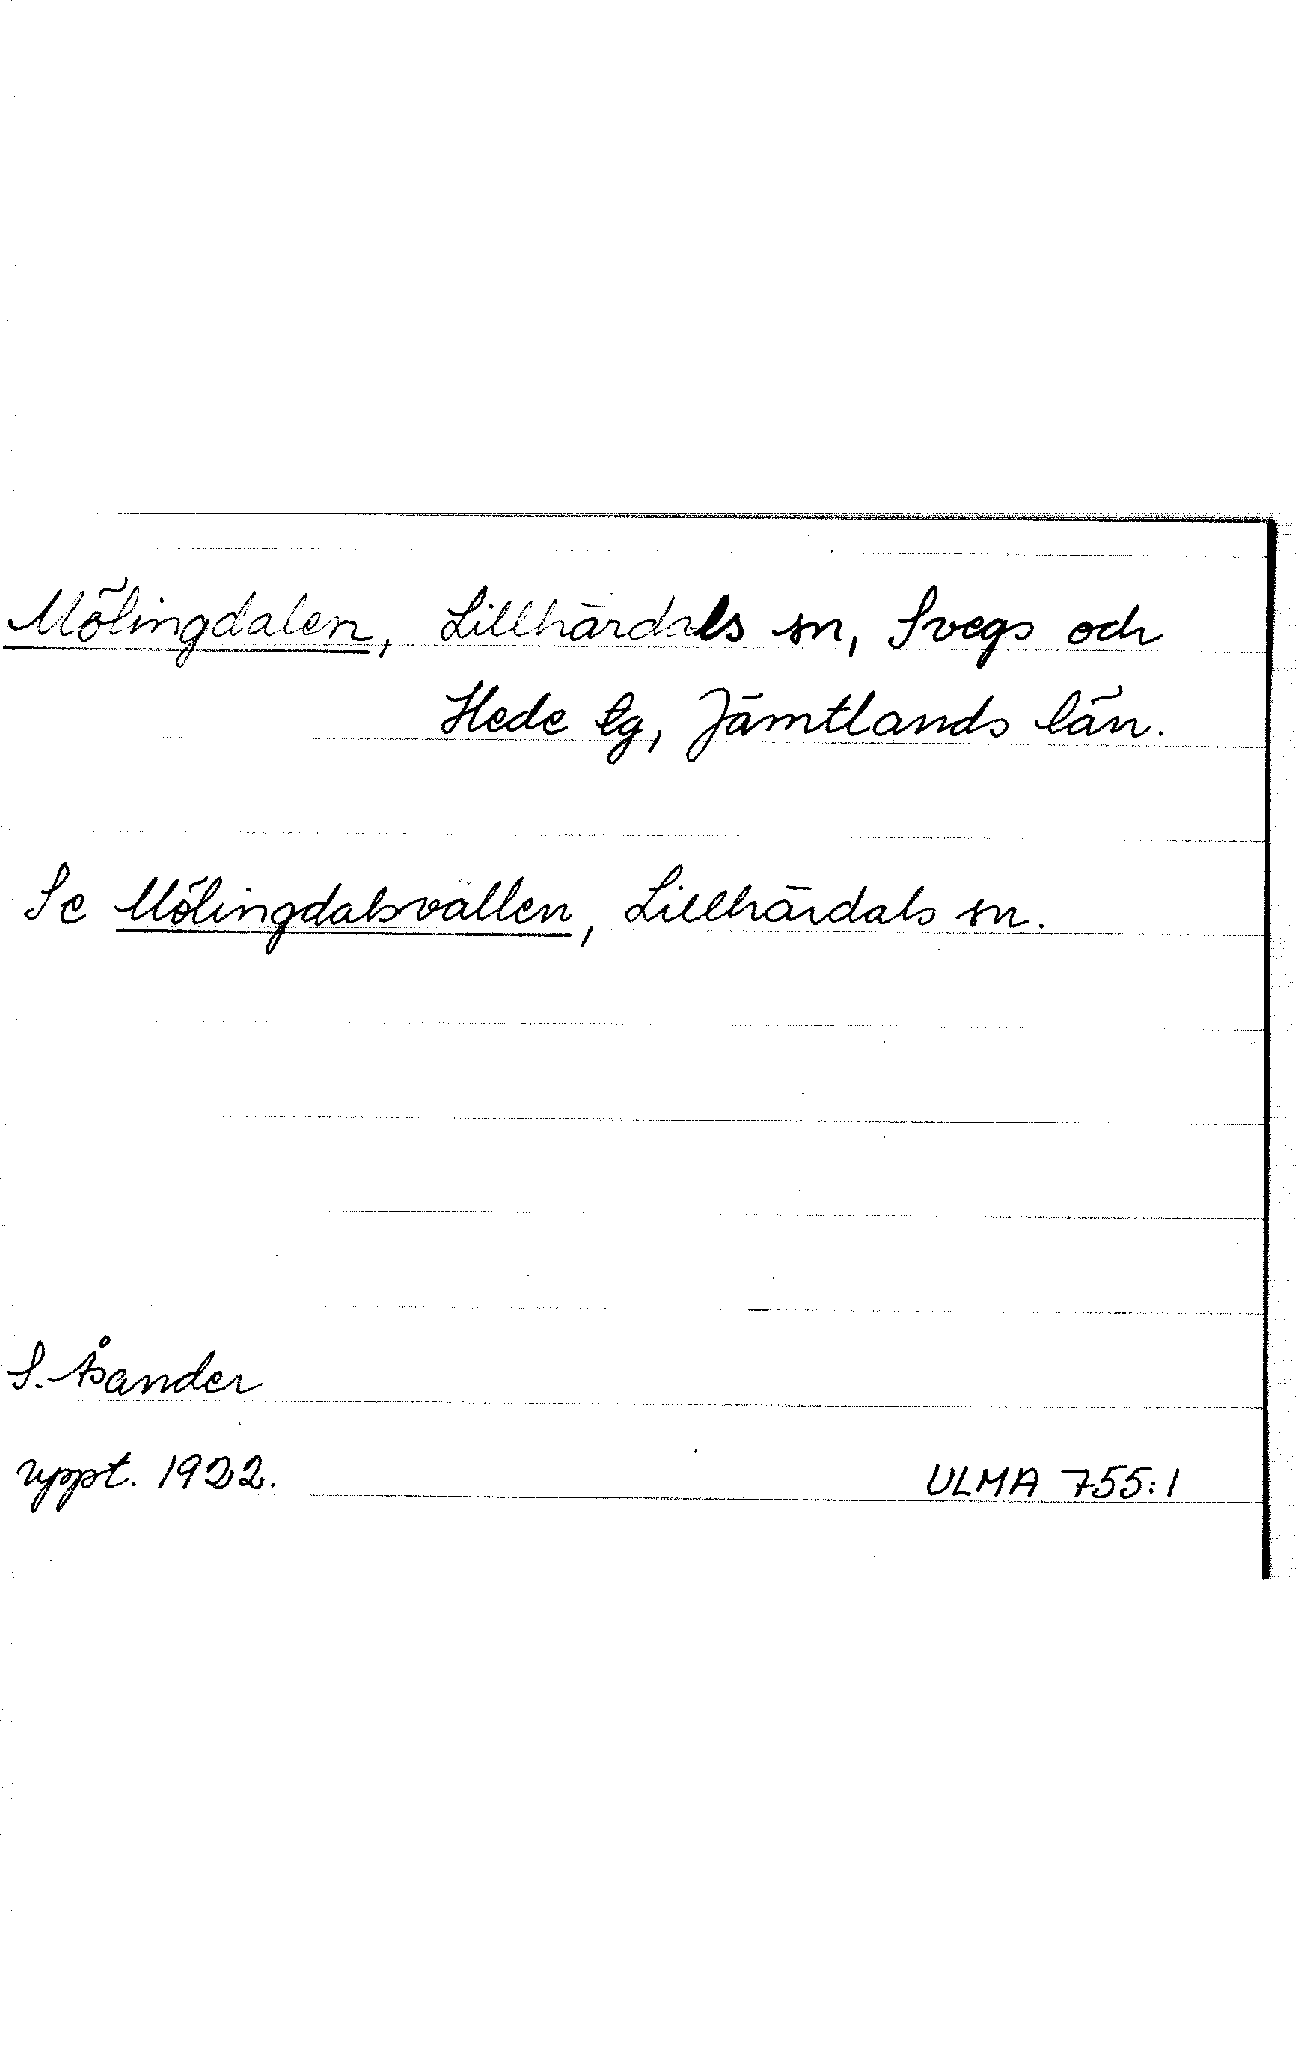 Mölingdalen, Lillhärdals sn, Svegs och
Hede tg, Jämtlands län.
Se Mölingdalsvallen, Lillhärdals sn.
S. Åsander
uppt. 1922.
ULMA 755:1